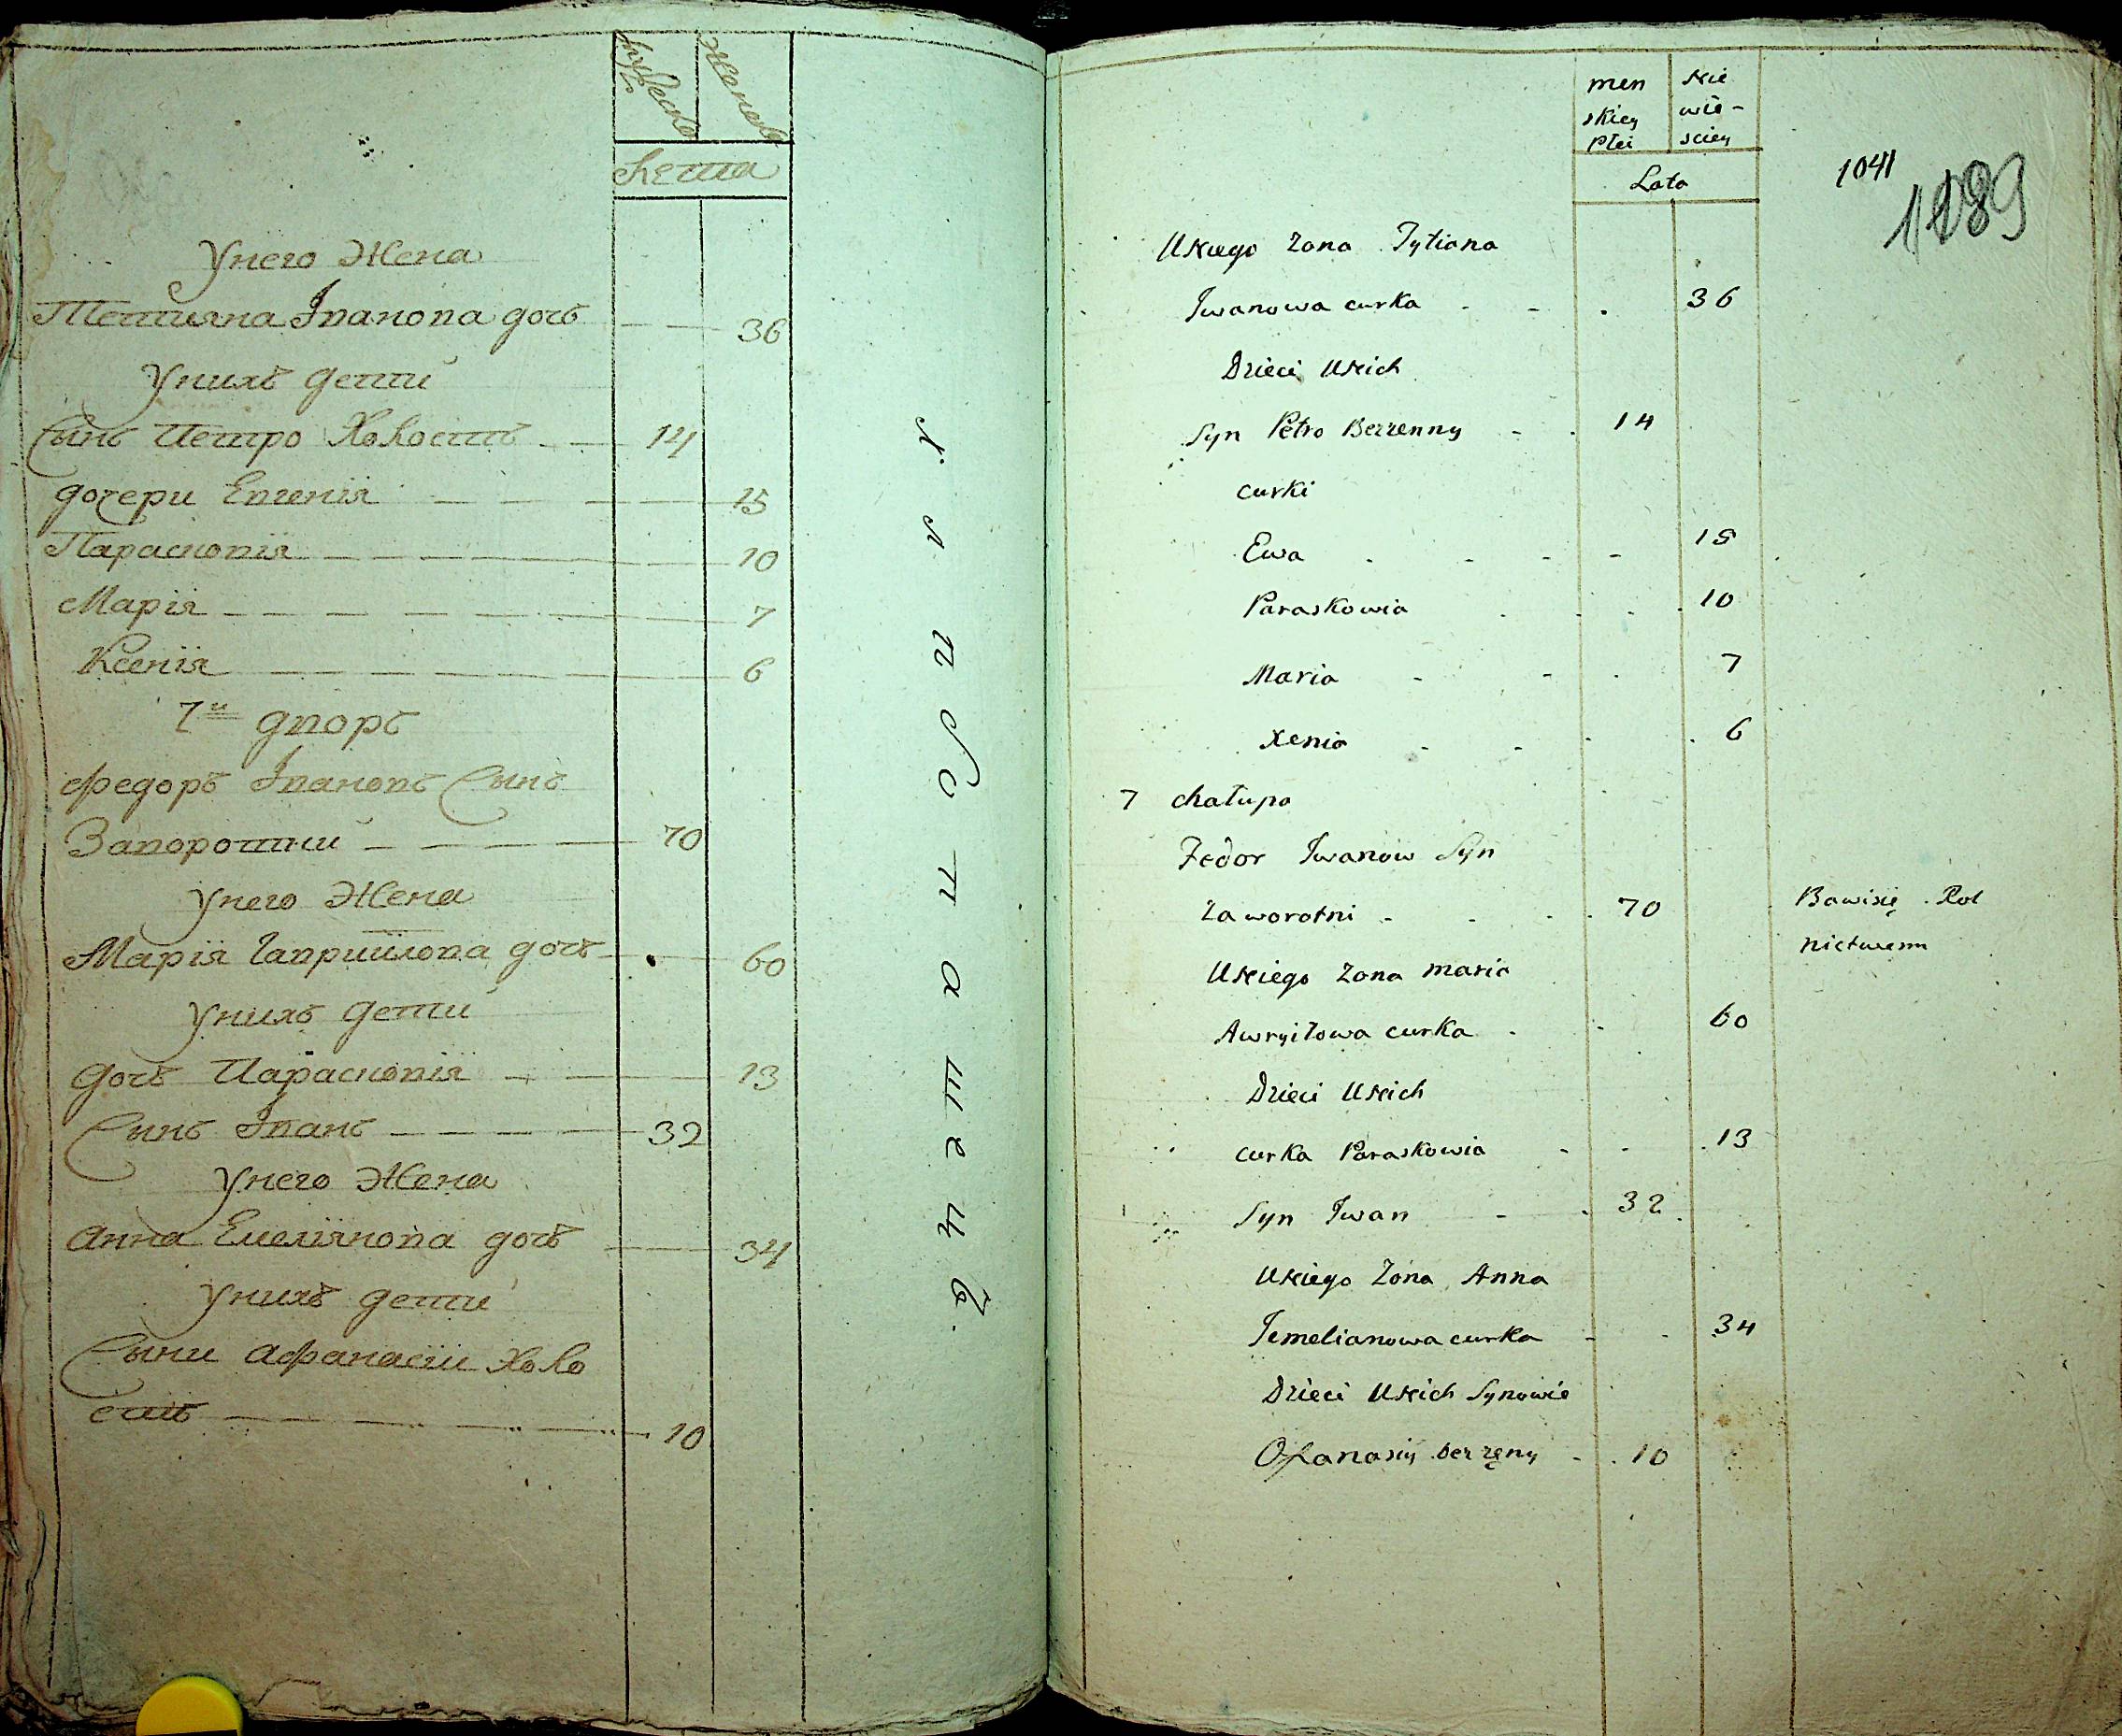 мужеска
женска
лета
У него Жена
Тетияна Іванова дочь 36
У нихъ дети
Сынъ Петро Холостъ 14
дочери Евгенія 15
Парасковія 10
Марія 7
Ксенія 6
7й дворъ
Федоръ Івановъ Сынъ
Заворотній 70
У него Жена
Марія Гавриилова дочь 60
У нихъ дети
дочь Парасковія 13
Сынъ Іванъ 32
У него Жена
Анна Емеліянова дочь 34
У нихъ дети
Сыни Афанасій Холо
стъ 10
men skiey Płci
Nie wie- sciey
Lata
1041
1189
U Niego Zona Tytiana
Iwanowa curka 36
Dzieci U Nich
Syn Petro Bezzenny 14
curki
Ewa 15
Paraskowia 10
Maria 7
Xenia 6
7 chałupa
Fedor Iwanow Syn
Zaworotni 70 Bawi się Rol
nictwem
U Niego Zona Maria
Awryiłowa curka 60
Dzieci U Nich
curka Paraskowia 13
Syn Iwan 32
U Niego Zona Anna
Iemelianowa curka 34
Dzieci U Nich Synowie
Ofanasiy bezzęny 10